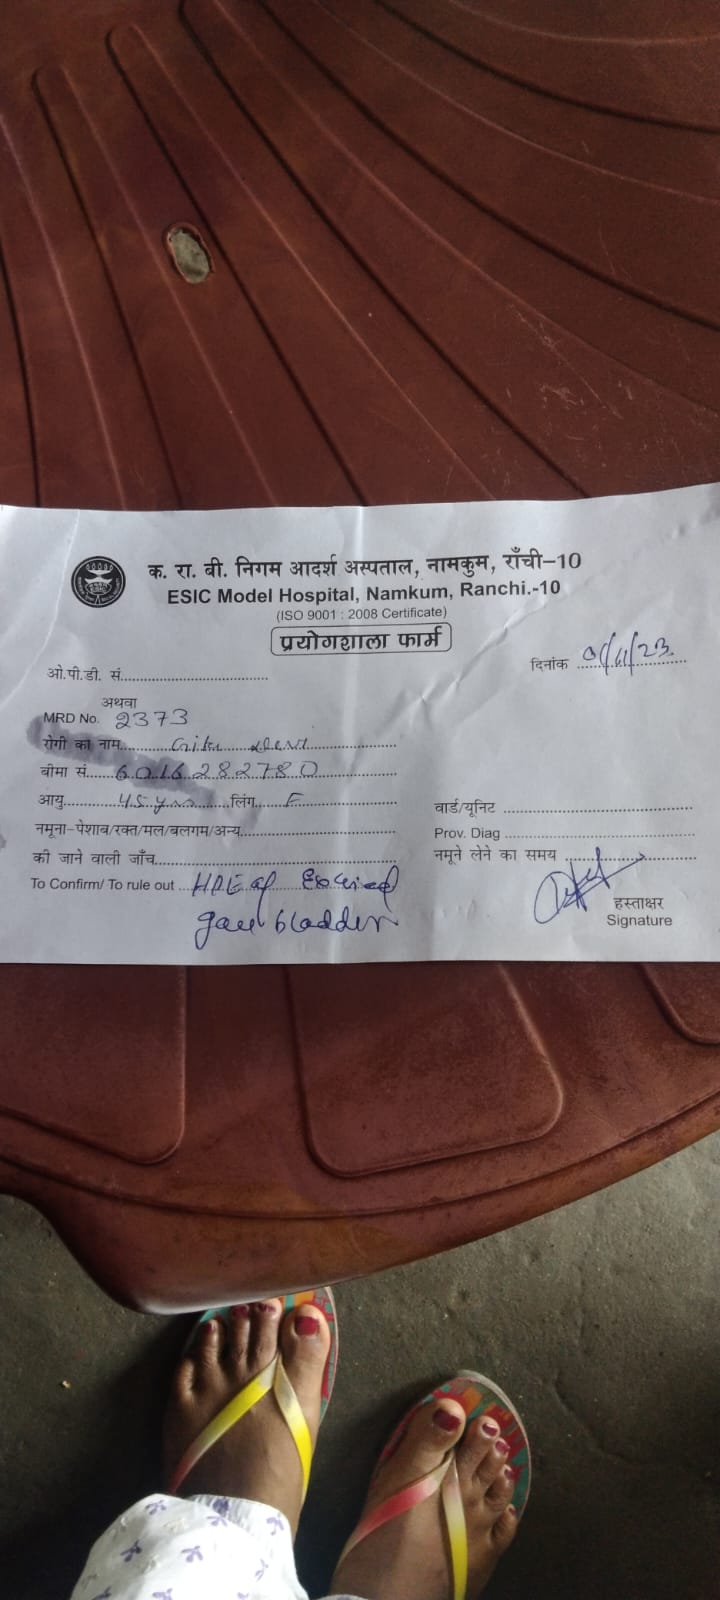 क. रा. बी. निगम आदर्श अस्पताल, नामकुम, राँची-10
ESIC Model Hospital, Namkum, Ranchi.-10
(ISO 9001 : 2008 Certificate)
प्रयोगशाला फार्म
ओ.पी.डी. सं.
दिनांक
अथवा
MRD No. 2373
रोगी का नाम
बीमा सं. 6016282780
आयु 45 yrs लिंग F
वार्ड/यूनिट
नमूना-पेशाब/रक्त/मल/बलगम/अन्य
Prov. Diag
की जाने वाली जाँच
नमूने लेने का समय
To Confirm/ To rule out HPE of Excised
gall bladder
हस्ताक्षर
Signature